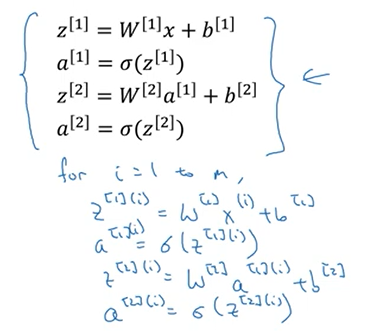 z^[1] = W^[1]x + b^[1]
a^[1] = σ(z^[1])
z^[2] = W^[2]a^[1] + b^[2]
a^[2] = σ(z^[2])
for i = 1 to m,
z^[1](i) = W^[1] x^(i) + b^[1]
a^[1](i) = σ(z^[1](i))
z^[2](i) = W^[2] a^[1](i) + b^[2]
a^[2](i) = σ(z^[2](i))